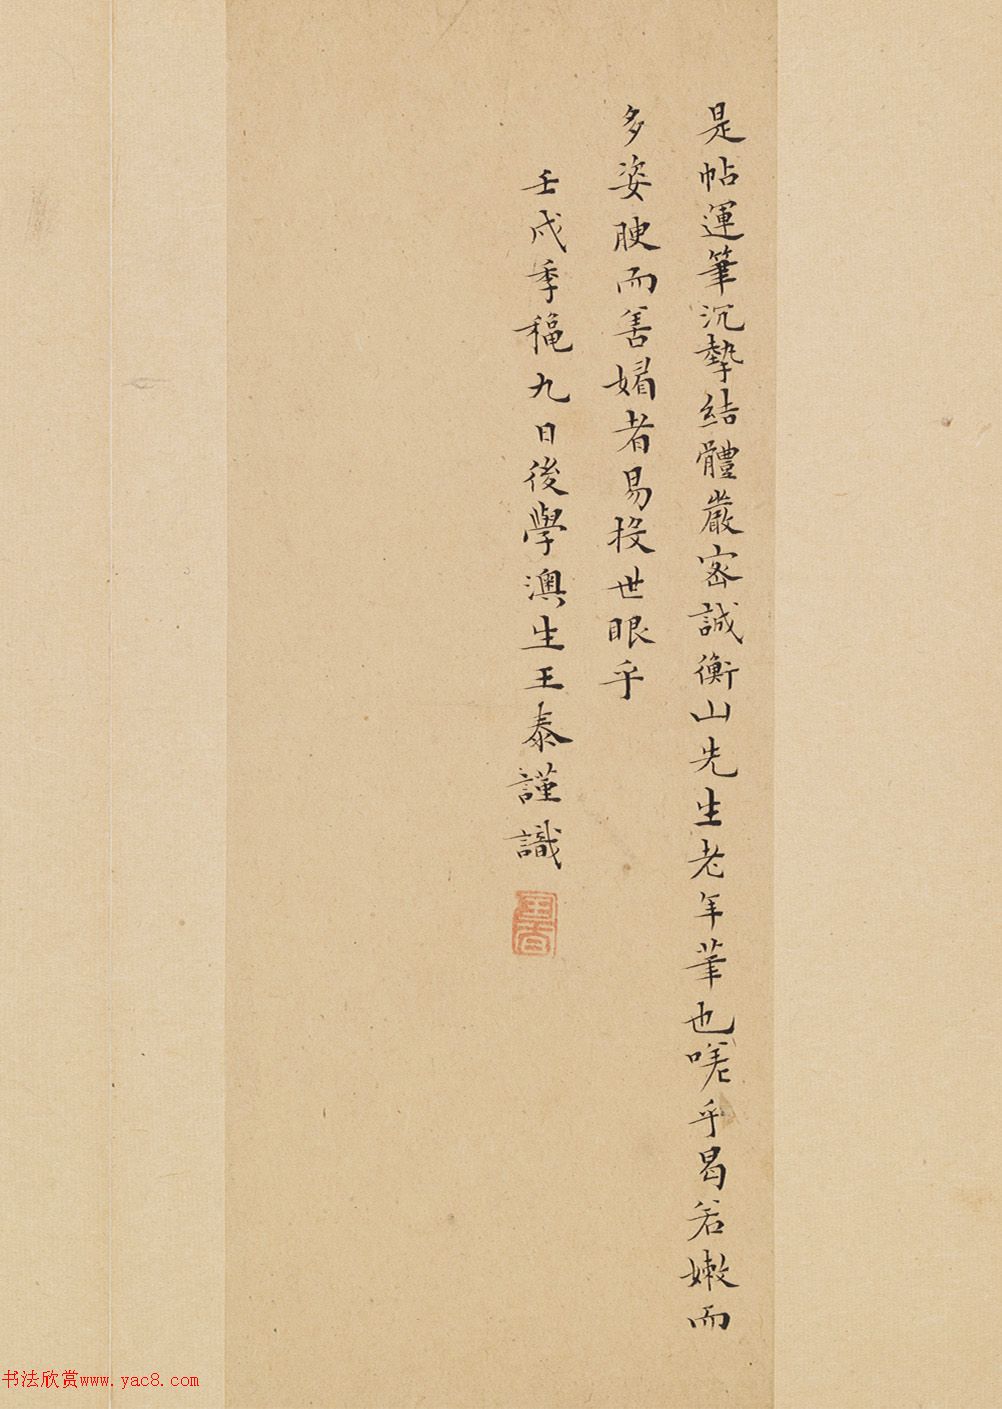 是帖運筆沉摯結體嚴密誠衡山先生老年筆也嗟乎曷若嫩而
多姿腴而善媚者易投世眼乎
壬戌季穐九日後學澳生王泰謹識
书法欣赏www.yac8.com